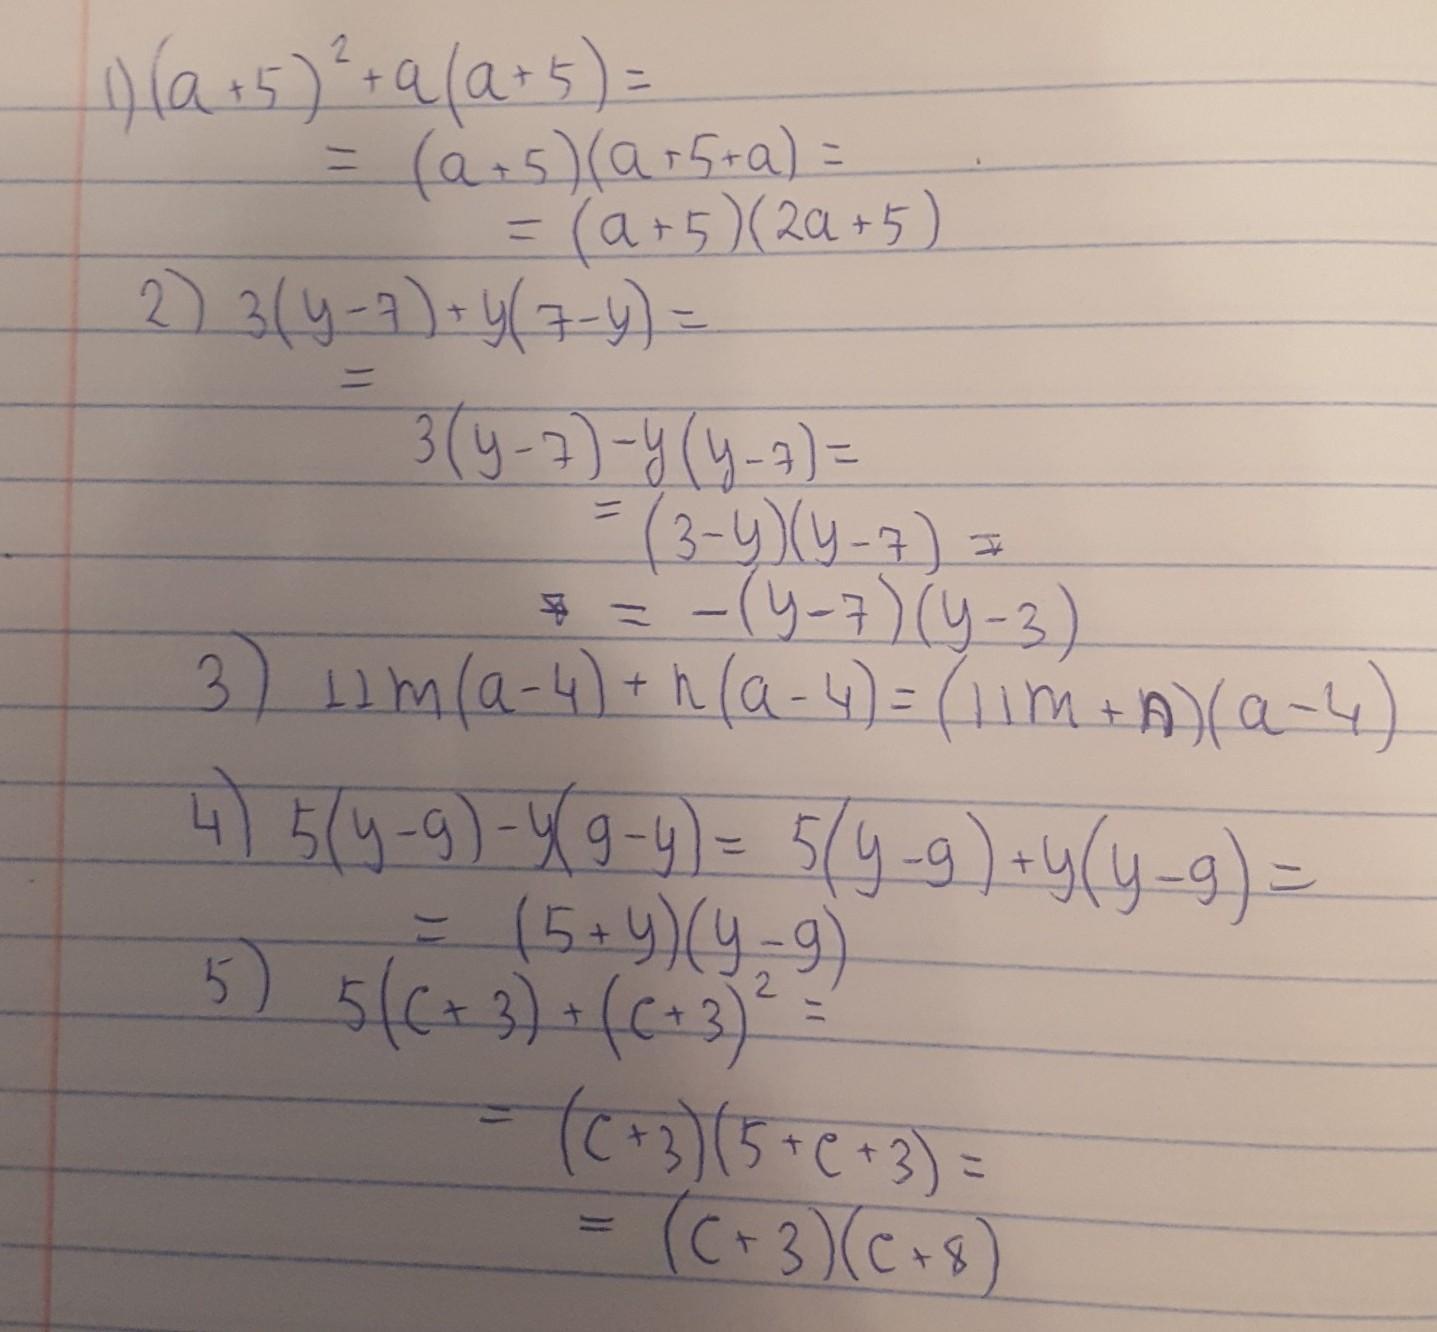 1) (a+5)² + a(a+5) =
= (a+5)(a+5+a) =
= (a+5)(2a+5)
2) 3(y-7) + y(7-y) =
=
3(y-7) - y(y-7) =
= (3-y)(y-7) =
= -(y-7)(y-3)
3) 11m(a-4) + n(a-4) = (11m+n)(a-4)
4) 5(y-9) - y(9-y) = 5(y-9) + y(y-9) =
= (5+y)(y-9)
5) 5(c+3) + (c+3)² =
= (c+3)(5+c+3) =
= (c+3)(c+8)